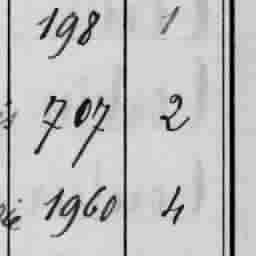 198 1
707 2
1960 4